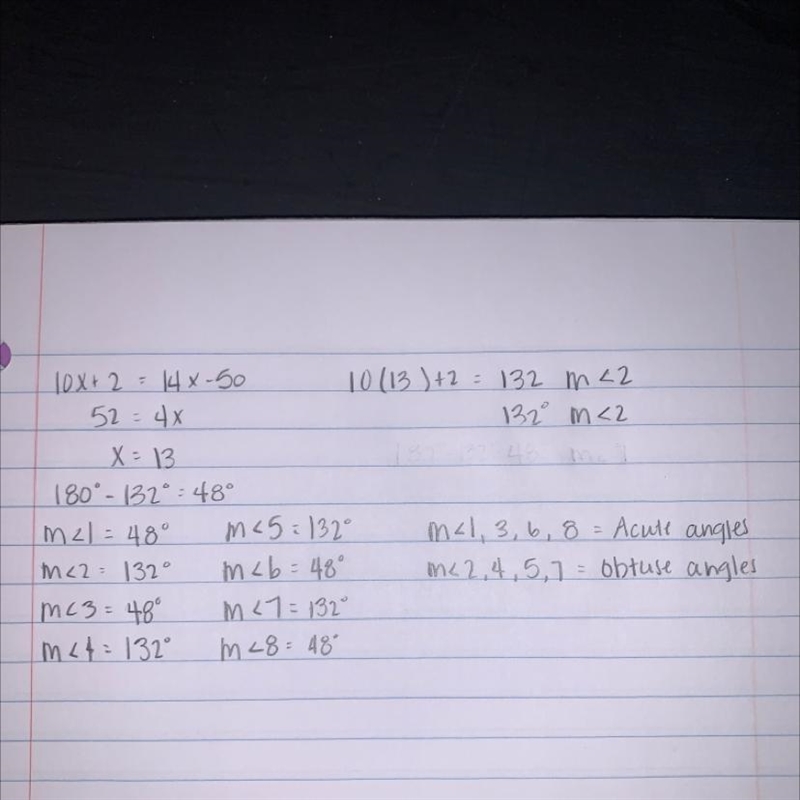 10x + 2 = 14x - 50
52 = 4x
x = 13
10(13)+2 = 132 m<2
132° m<2
180° - 132° = 48°
m<1 = 48°
m<2 = 132°
m<3 = 48°
m<4 = 132°
m<5 = 132°
m<6 = 48°
m<7 = 132°
m<8 = 48°
m<1, 3, 6, 8 = Acute angles
m<2, 4, 5, 7 = obtuse angles